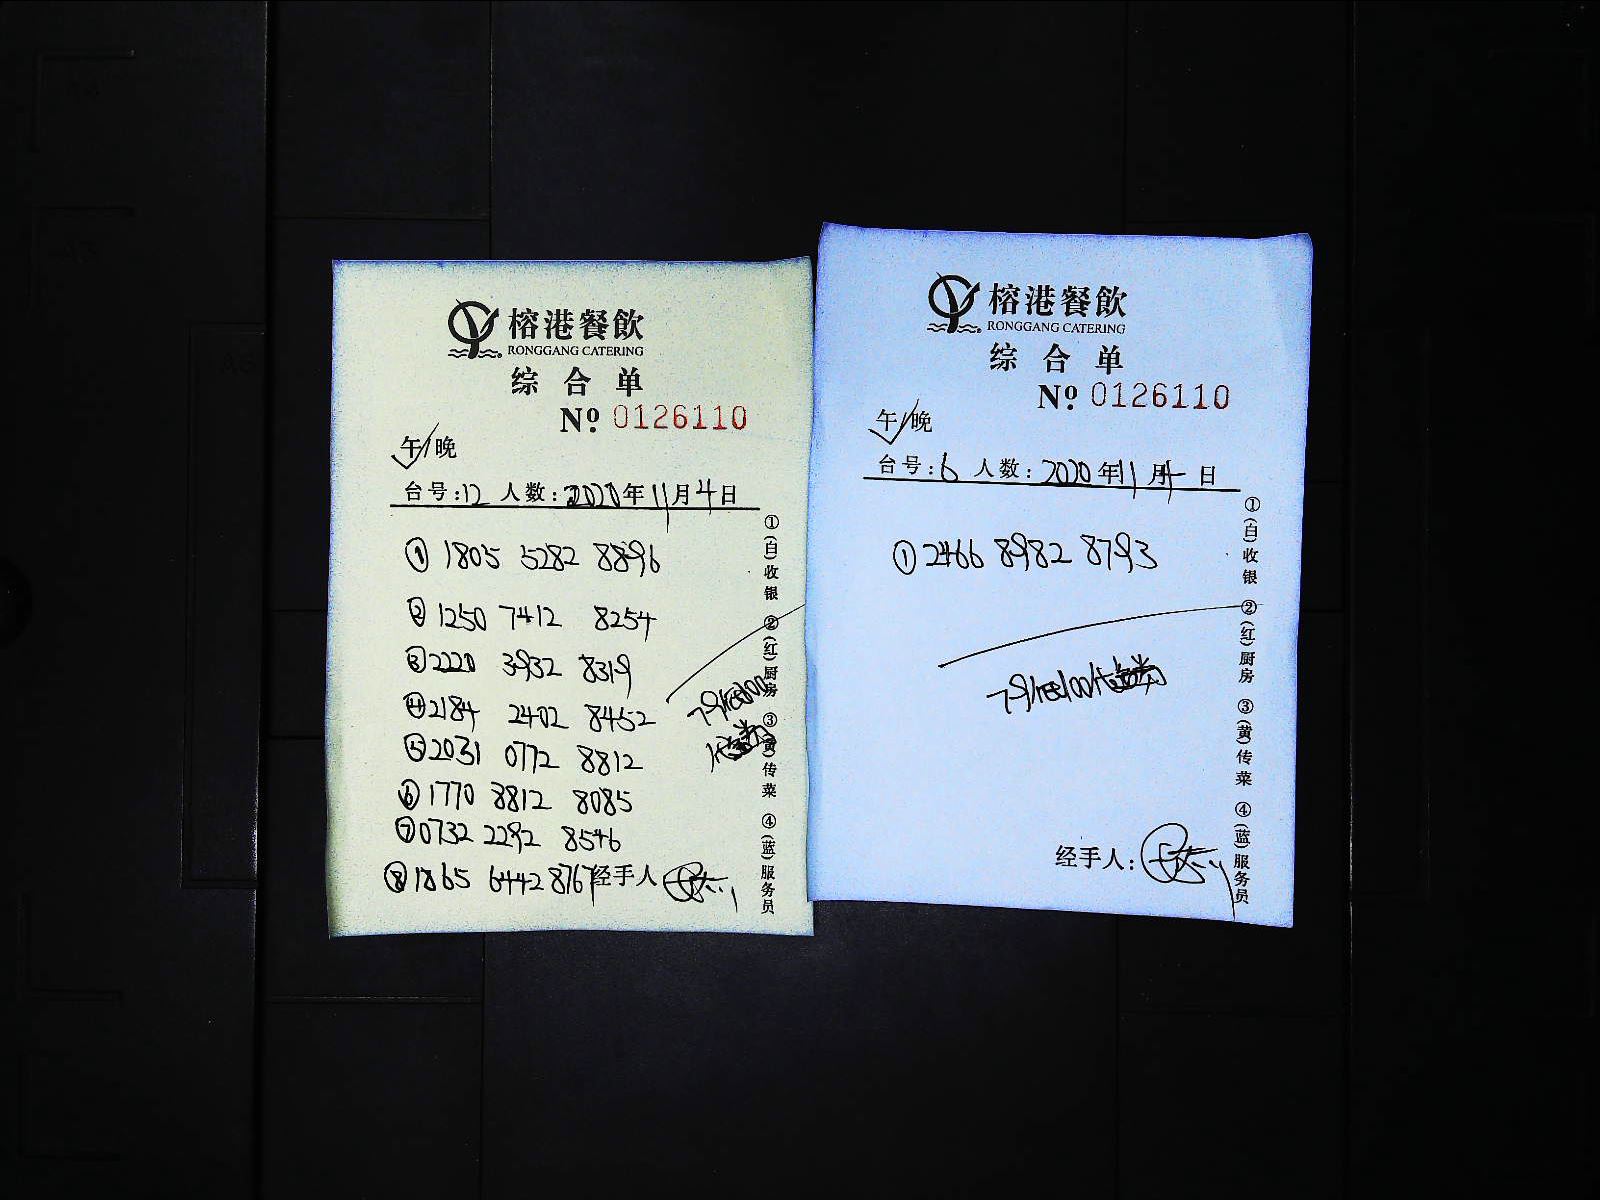 榕港餐飲
RONGGANG CATERING
综合单
Nº 0126110
午/晚
台号:12 人数: 2020年11月4日
① 1805 5282 8896
② 1250 7412 8254
③ 2220 3932 8319
④ 2184 2402 8452
⑤ 2031 0772 8812
⑥ 1770 3812 8085
⑦ 0732 2292 8546
⑧ 1865 6442 8767
经手人
①(白)收银 ②(红)厨房 ③(黄)传菜 ④(蓝)服务员
榕港餐飲
RONGGANG CATERING
综合单
Nº 0126110
午/晚
台号:6 人数: 2020年11月4日
① 2466 8982 8793
经手人:
①(白)收银 ②(红)厨房 ③(黄)传菜 ④(蓝)服务员